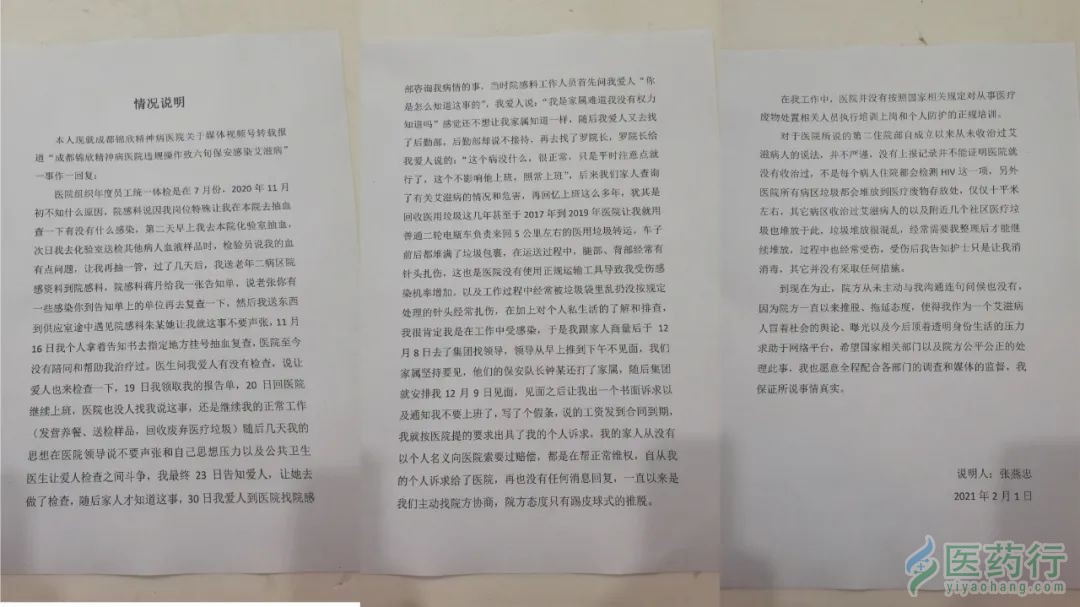 情况说明
本人现就成都锦欣精神病医院关于媒体视频号转载报
道“成都锦欣精神病医院违规操作致六旬保安感染艾滋病”
一事作一回复：
医院组织年度员工统一体检是在7月份，2020年11月
初不知什么原因，院感科说因我岗位特殊让我在本院去抽血
查一下有没有什么感染，第二天早上我去本院化验室抽血，
次日我去化验室送检其他病人血液样品时，检验员说我的血
有点问题，让我再抽一管，过了几天后，我送老年二病区院
感资料到院感科，院感蒋丹给我一张告知单，说老张你有
一些感染你到告知单上的单位再去复查一下，然后我送东西
到供应室途中遇见院感科朱某她让我就这事不要声张，11月
16日我个人拿着告知书去指定地方挂号抽血复查，医院至今
没有陪同和帮助我治疗过。医生问我爱人有没有检查，说让
爱人也来检查一下，19日我领取我的报告单，20日回医院
继续上班，医院也没人找我说这事，还是继续我的正常工作
（发营养餐、送检样品，回收废弃医疗垃圾）随后几天我的
思想在医院领导说不要声张和自己思想压力以及公共卫生
医生让爱人检查之间斗争，我最终23日告知爱人，让她去
做了检查，随后家人才知道这事，30日我爱人到医院找院感
部咨询我病情的事，当时院感科工作人员首先问我爱人“你
是怎么知道这事的”，我爱人说：“我是家属难道我没有权力
知道吗”感觉还不想让我家属知道一样，随后我爱人又去找
了后勤部，后勤部却说不接待，再去找了罗院长，罗院长给
我爱人说的：“这个病没什么，很正常，只是平时注意点就
行了，这个不影响他上班，照常上班”，后来我们家人查询
了有关艾滋病的情况和危害，再回忆上班这么多年，犹其是
回收医用垃圾这几年甚至于2017年到2019年医院让我就用
普通二轮电瓶车负责来回5公里左右的医用垃圾转运，车子
前后都堆满了垃圾包裹，在运送过程中，腿部、背部经常有
针头扎伤，这也是医院没有使用正规运输工具导致我受伤感
染机率增加，以及工作过程中经常被垃圾袋里乱扔没按规定
处理的针头经常扎伤，在加上对个人私生活的了解和排查，
我很肯定我是在工作中受感染，于是我跟家人商量后于12
月8日去了集团找领导，领导从早上推到下午不见面，我们
家属坚持要见，他们的保安队长钟某还打了家属，随后集团
就安排我12月9日见面，见面之后让我出一个书面诉求以
及通知我不要上班了，写了个假条，说的工资发到合同到期，
我就按医院提的要求出具了我的个人诉求，我的家人从没有
以个人名义向医院索要过赔偿，都是在帮正常维权，自从我
的个人诉求给了医院，再也没有任何消息回复，一直以来是
我们主动找院方协商，院方态度只有踢皮球式的推脱。
在我工作中，医院并没有按照国家相关规定对从事医疗
废物处置相关人员执行培训上岗和个人防护的正规培训。
对于医院所说的第二住院部自成立以来从未收治过艾
滋病人的说法，并不严谨，没有上报记录并不能证明医院就
没有收治过，不是每个病人住院都会检测HIV这一项，另外
医院所有病区垃圾都会堆放到医疗废物存放处，仅仅十平米
左右，其它病区收治过艾滋病人的以及附近几个社区医疗垃
圾也堆放于此，垃圾堆放很混乱，经常需要我整理后才能继
续堆放，过程中也经常受伤，受伤后我告知护士只是让我消
消毒，其它并没有采取任何措施。
到现在为止，院方从未主动与我沟通连句问候也没有，
因为院方一直以来推脱、拖延态度，使得我作为一个艾滋病
人冒着社会的舆论、曝光以及今后顶着透明身份生活的压力
求助于网络平台，希望国家相关部门以及院方公平公正的处
理此事，我也愿意全程配合各部门的调查和媒体的监督，我
保证所说事情真实。
说明人：张燕忠
2021年2月1日
医药行
yiyaohang.com